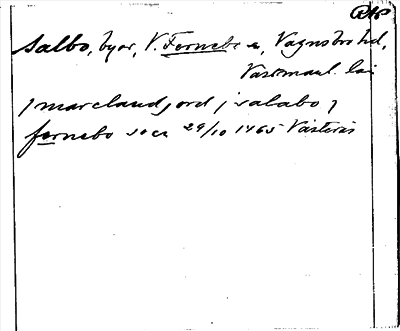 Salbo, byar, V. Fernebo sn, Vagnsbro hd,
Västmanl. län
j marcland jord j salabo j
fernebo socn 29/10 1465 Västerås